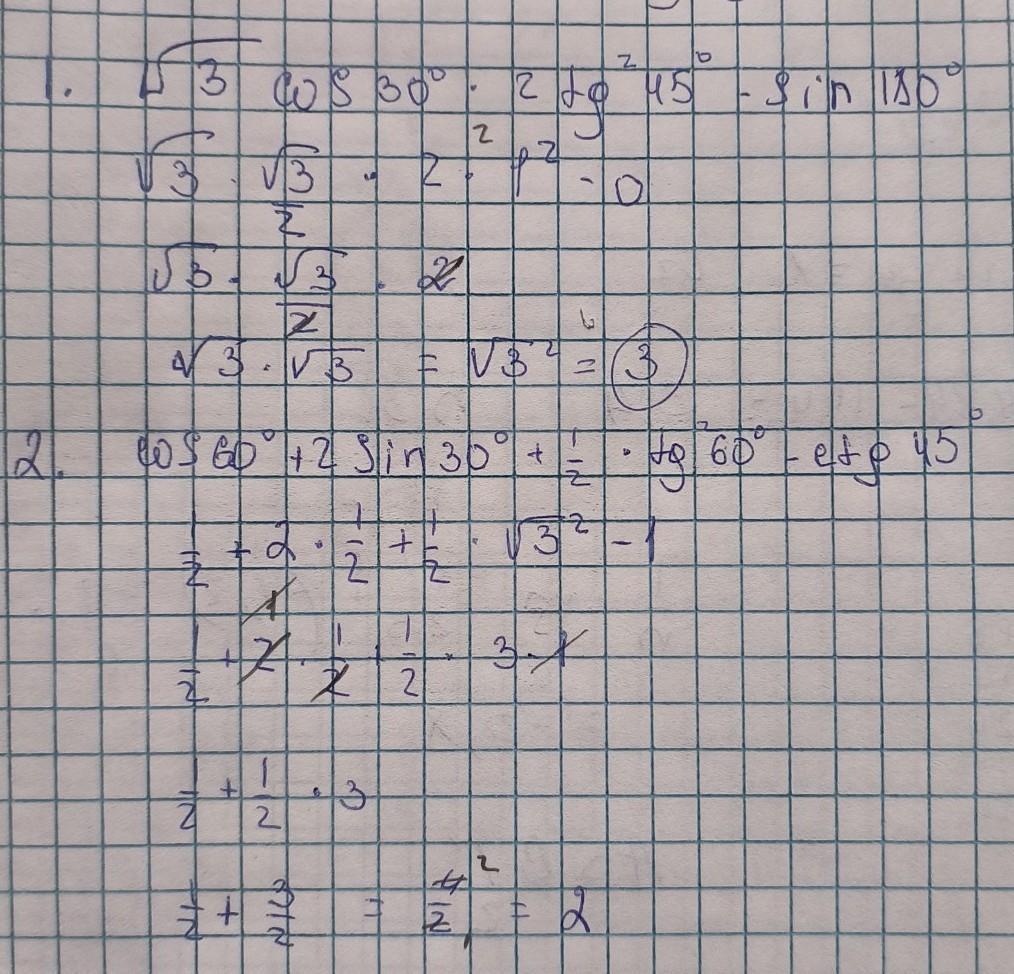 1. √3 cos 30° · 2 tg² 45° - sin 180°
√3 · √3/2 · 2 · 1² - 0
√3 · √3/2 · 2
√3 · √3 = √3² = 3
2. cos 60° + 2 sin 30° + 1/2 · tg² 60° - ctg 45°
1/2 + 2 · 1/2 + 1/2 · √3² - 1
1/2 + 2 · 1/2 + 1/2 · 3 - 1
1/2 + 1/2 · 3
1/2 + 3/2 = 4/2 = 2